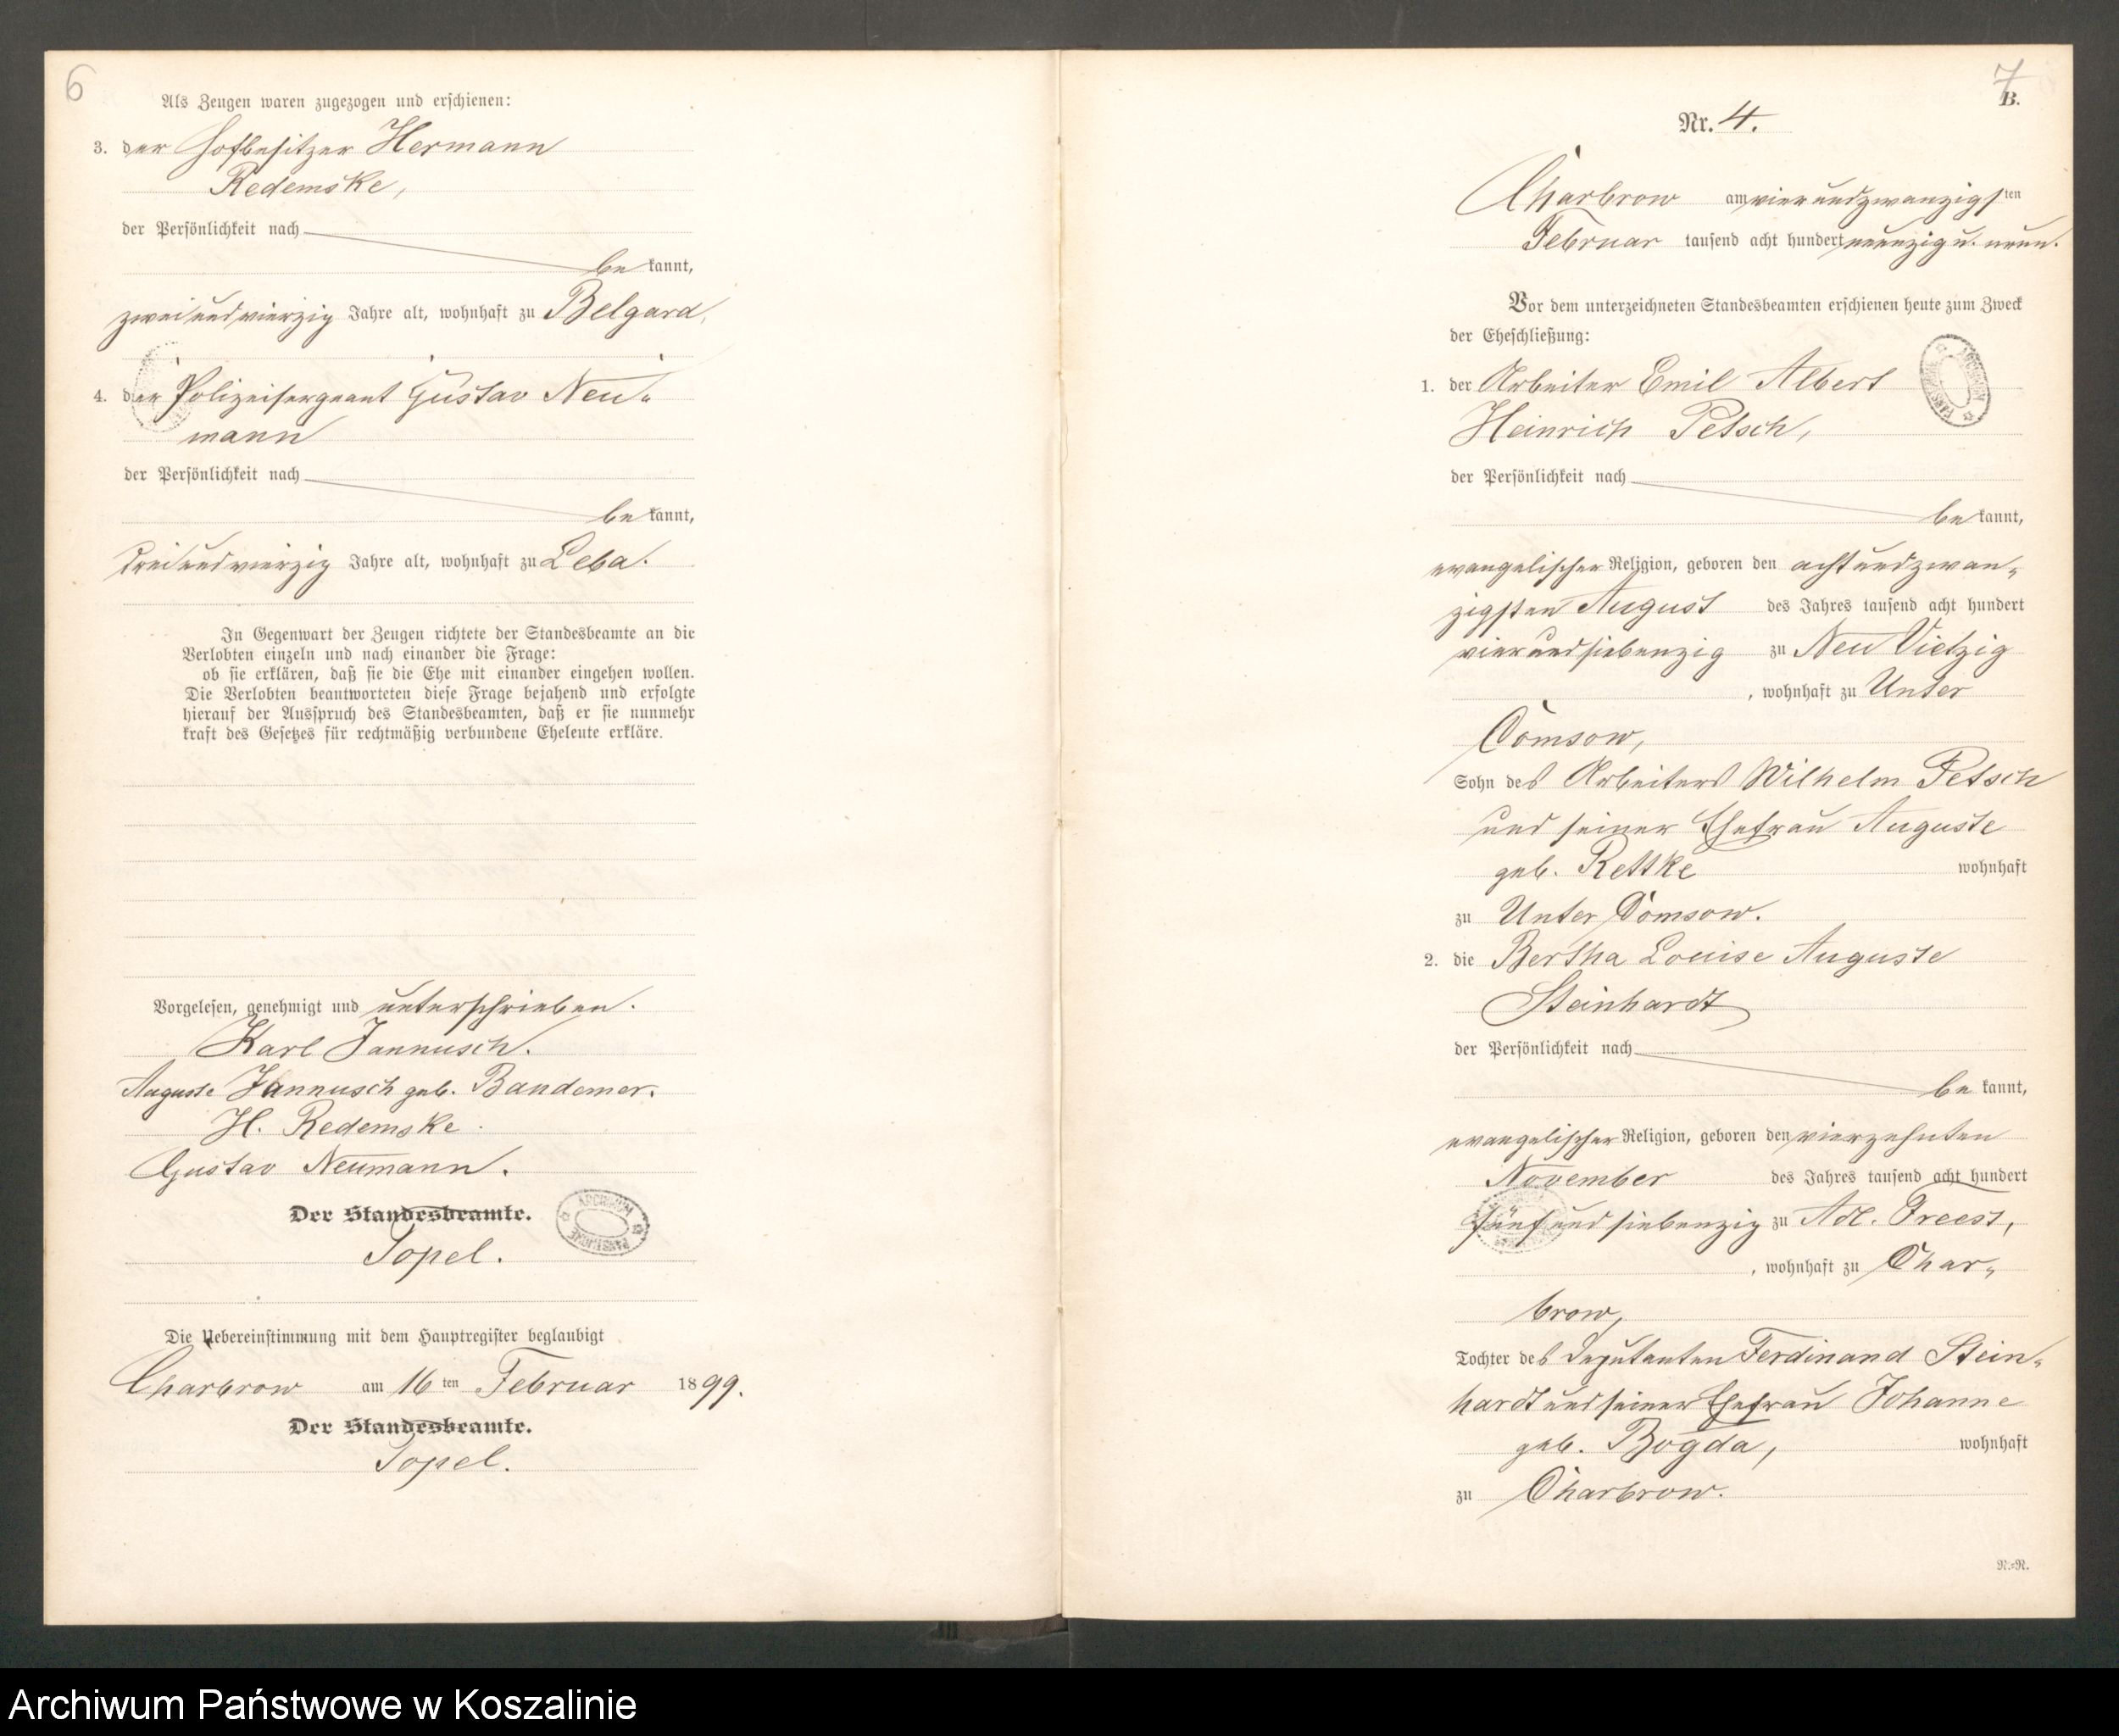 6
Als Zeugen waren zugezogen und erschienen:
3. der Hofbesitzer Hermann
Redemske,
der Persönlichkeit nach
be kannt,
zweiundvierzig Jahre alt, wohnhaft zu Belgard,
4. der Polizeisergeant Gustav Neu„
mann
der Persönlichkeit nach
be kannt,
dreiundvierzig Jahre alt, wohnhaft zu Leba.
In Gegenwart der Zeugen richtete der Standesbeamte an die
Verlobten einzeln und nach einander die Frage:
ob sie erklären, daß sie die Ehe mit einander eingehen wollen.
Die Verlobten beantworteten diese Frage bejahend und erfolgte
hierauf der Ausspruch des Standesbeamten, daß er sie nunmehr
kraft des Gesetzes für rechtmäßig verbundene Eheleute erkläre.
Vorgelesen, genehmigt und unterschrieben.
Karl Jannusch.
Auguste Jannusch geb. Bandemer.
H. Redemske.
Gustav Neumann.
Der Standesbeamte.
Topel.
Die Uebereinstimmung mit dem Hauptregister beglaubigt
Charbrow am 16ten Februar 1899.
Der Standesbeamte.
Topel.
7
B.
Nr. 4.
Charbrow am vierundzwanzigsten
Februar tausend acht hundert neunzig u. neun.
Vor dem unterzeichneten Standesbeamten erschienen heute zum Zweck
der Eheschließung:
1. der Arbeiter Emil Albert
Heinrich Petsch,
der Persönlichkeit nach
be kannt,
evangelischer Religion, geboren den achtundzwan„
zigsten August des Jahres tausend acht hundert
vierundsiebenzig zu Neu Vietzig
, wohnhaft zu Unter
Comsow,
Sohn des Arbeiters Wilhelm Petsch
und seiner Ehefrau Auguste
geb. Rettke wohnhaft
zu Unter Comsow.
2. die Bertha Louise Auguste
Steinhardt
der Persönlichkeit nach
be kannt,
evangelischer Religion, geboren den vierzehnten
November des Jahres tausend acht hundert
fünfundsiebenzig zu Adl. Freest,
, wohnhaft zu Char„
brow,
Tochter des Deputanten Ferdinand Stein„
hardt und seiner Ehefrau Johanne
geb. Bogda, wohnhaft
zu Charbrow.
R.=R.
Archiwum Państwowe w Koszalinie